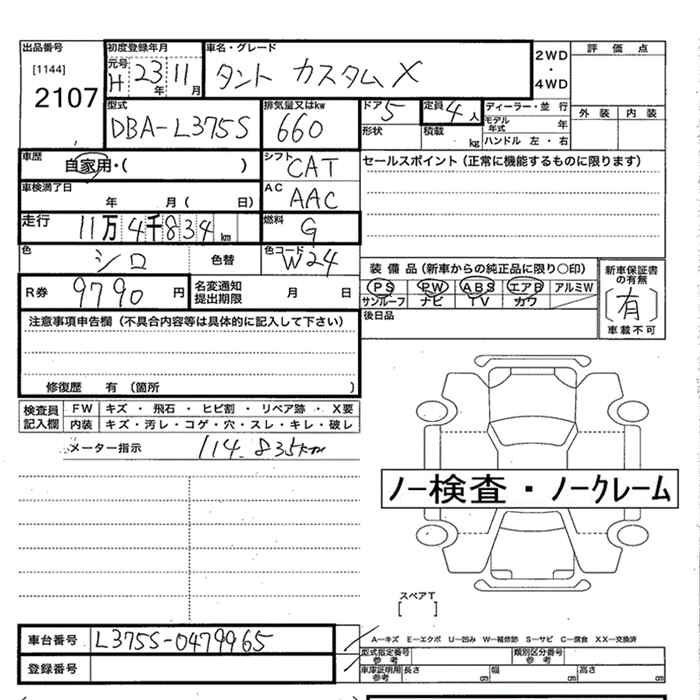 出品番号 初度登録年月 車名・グレード
[1144] 元号 H 23年 11月 タント カスタム X 2WD・4WD 評価点
2107
型式 排気量又はkw ドア 5 定員 4人 ディーラー・並行 外装 内装
DBA-L375S 660 形状 積載 kg モデル年式 年
ハンドル 左・右
車歴 自家用・( ) シフト CAT セールスポイント（正常に機能するものに限ります）
車検満了日 年 月( 日) AC AAC
走行 11万4千834km 燃料 G
色 シロ 色替 色コード W24
装備品（新車からの純正品に限り○印） 新車保証書の有無
R券 9790円 名変通知提出期限 月 日 PS PW ABS エアB アルミW [有]
サンルーフ ナビ TV カワ 車載不可
注意事項申告欄（不具合内容等は具体的に記入して下さい） 後日品
修復歴 有（箇所 ）
検査員記入欄 FW キズ・飛石・ヒビ割・リペア跡・X要
内装 キズ・汚レ・コゲ・穴・スレ・キレ・破レ
メーター指示 114.835km
ノー検査・ノークレーム
スペアT
[ ]
車台番号 L375S-0479965 A－キズ E－エクボ U－凹み W－補修跡 S－サビ C－腐食 XX－交換済
型式指定番号 参考 類別区分番号 参考
登録番号 車庫証明用 参考 長さ cm 幅 cm 高さ cm